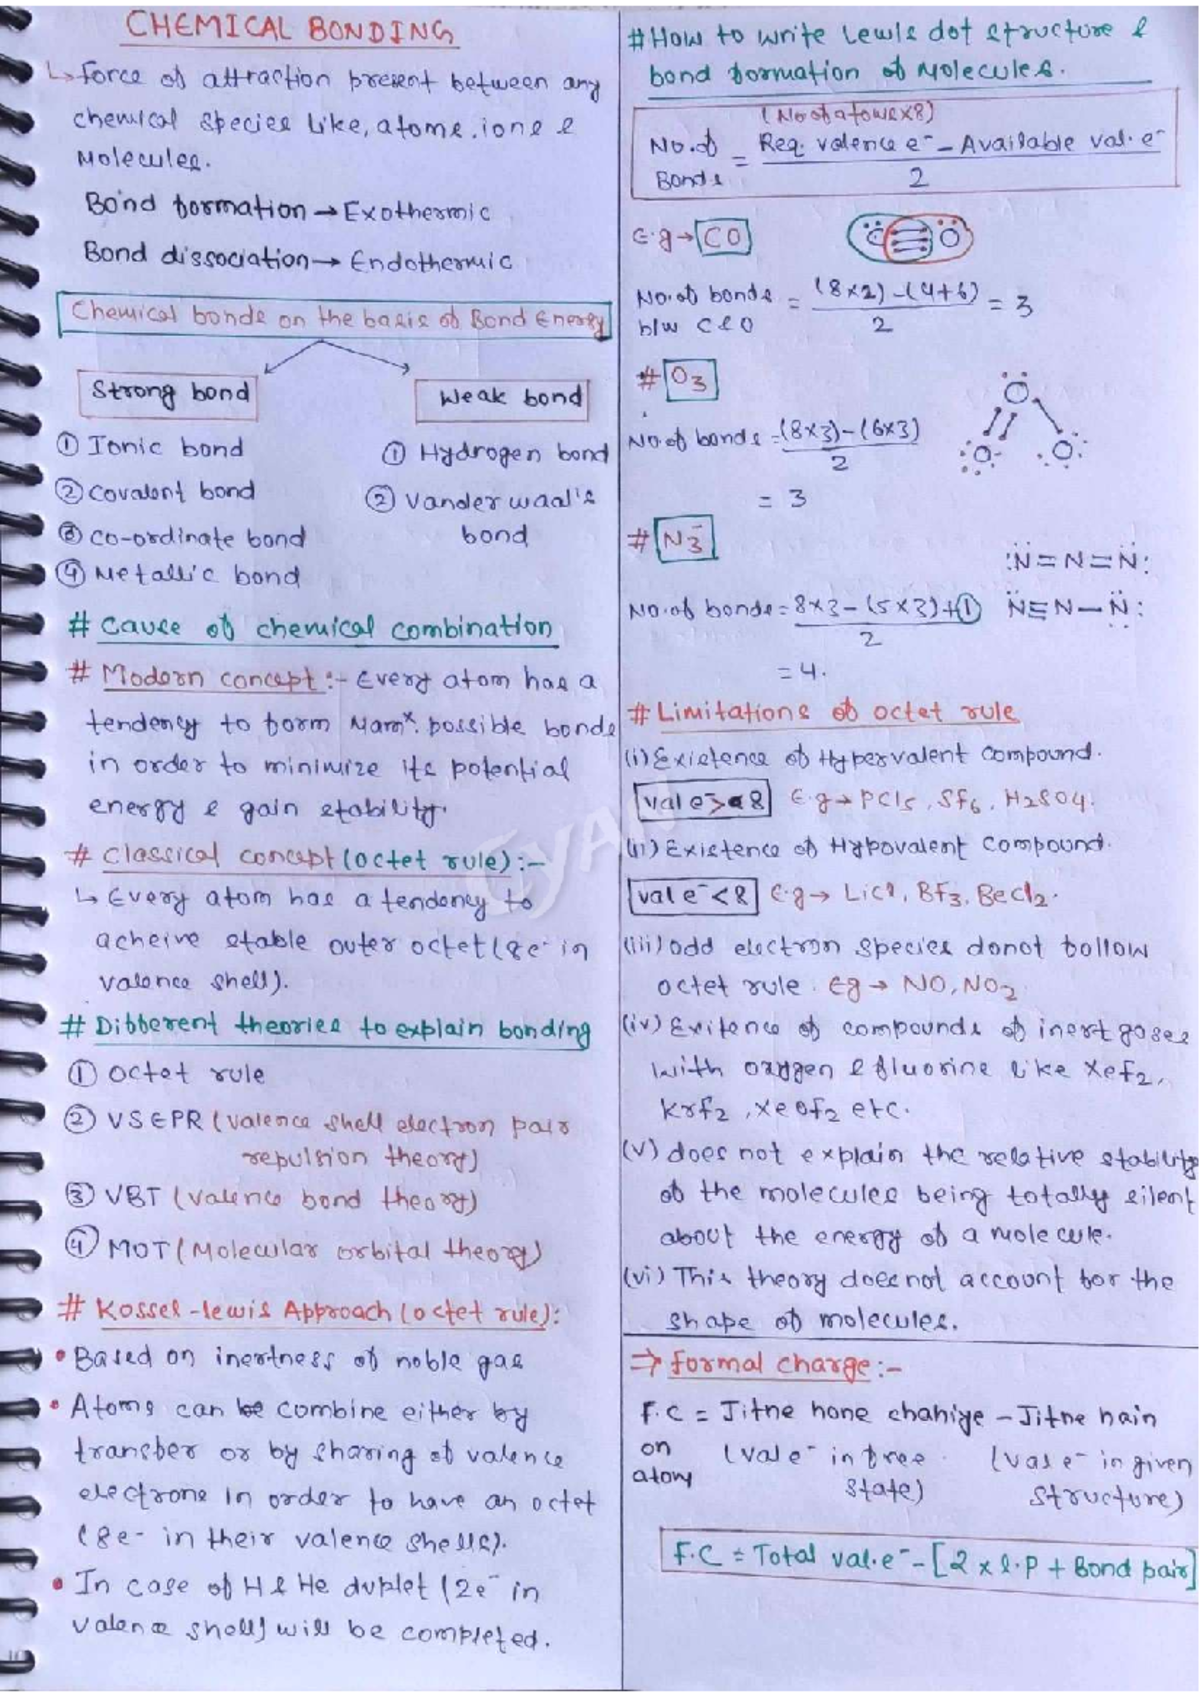 CHEMICAL BONDING
↳ Force of attraction present between any
chemical species like, atoms, ions &
Molecules.
Bond formation → Exothermic
Bond dissociation → Endothermic
Chemical bonds on the basis of Bond Energy
Strong bond
① Ionic bond
② Covalent bond
③ Co-ordinate bond
④ Metallic bond
Weak bond
① Hydrogen bond
② Vander waal's
bond
# Cause of chemical combination
# Modern concept :- Every atom has a
tendency to form Mamˣ. possible bonds
in order to minimize its potential
energy & gain stability.
# Classical concept (octet rule) :-
↳ Every atom has a tendency to
acheive stable outer octet (8e⁻ in
valence shell).
# Different theories to explain bonding
① Octet rule
② VSEPR (valence shell electron pair
repulsion theory)
③ VBT (valence bond theory)
④ MOT (Molecular orbital theory)
# Kossel-lewis Approach (octet rule):
• Based on inertness of noble gas
• Atoms can be combine either by
transfer or by sharing of valence
electrons in order to have an octet
(8e⁻ in their valence shells).
• In case of H & He duplet (2e⁻ in
valence shell) will be completed.
# How to write Lewis dot structure &
bond formation of Molecules.
(No of atoms x 8)
No. of Bonds = Req. valence e⁻ – Available val. e⁻ / 2
E.g → CO
C O
No. of bonds = (8x2) – (4+6) / 2 = 3
b/w C & O
# O₃
No. of bonds = (8x3) – (6x3) / 2
= 3
O
O O
# N₃⁻
:N = N = N:
No. of bonds = 8x3 – (5x3)+① / 2
N ≡ N – N:
= 4.
# Limitations of octet rule
(i) Existence of Hypervalent compound.
val e⁻ > 8 E.g → PCl₅, SF₆, H₂SO₄.
(ii) Existence of Hypovalent compound.
val e⁻ < 8 E.g → LiCl, BF₃, BeCl₂.
(iii) odd electron species donot follow
octet rule. Eg → NO, NO₂
(iv) Exitence of compounds of inert gases
with oxygen & fluorine like XeF₂,
KrF₂, XeOF₂ etc.
(v) does not explain the relative stability
of the molecules being totally silent
about the energy of a molecule.
(vi) This theory does not account for the
shape of molecules.
⇒ Formal charge :-
F.C = Jitne hone chahiye – Jitne hain
on atom (val e⁻ in free state) (val e⁻ in given structure)
F.C = Total val. e⁻ – [2 x l.P + Bond pair]
GyAN